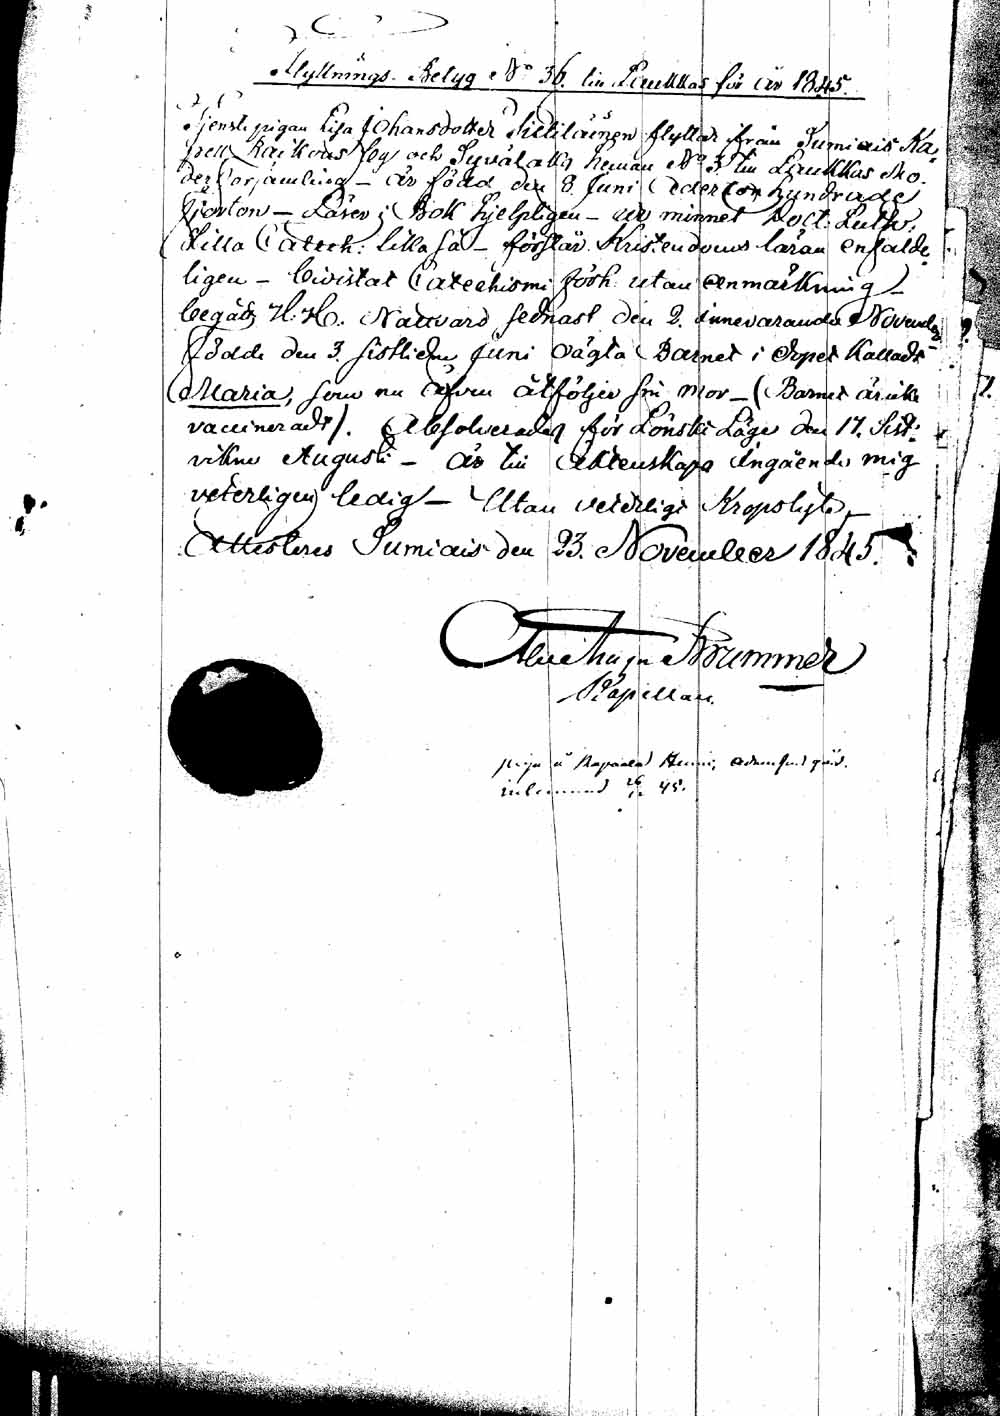 Flyttnings-Betyg No 36. till Laukkas för år 1845.
Tjenstepigan Lisa Johansdotter flyttar ifrån Sumiais Ka-
pell och Syvälaks heman No 3. till Laukkas Mo-
derförsamling – är född den 8 Juni Adertonhundrade
fjorton – Läser i Bok hjelpligen – ur minnet Doct. Luth.
Lilla Catech: lika så – förstår Kristendoms läran enfalde-
ligen – bivistat Catechismi förh. utan anmärkning –
begått H. H. Nattvard sednast den 2. innevarande November
Födde den 3. sistledne Juni oägta Barnet i Dopet Kalladt
Maria, som nu äfven åtföljer sin Mor – (Barnet är icke
vaccineradt). Absolverades för Lönskt Läge den 17. sist-
vikne Augusti – är till Äktenskaps Ingående mig
veterligen ledig – Utan veterligt Kropslyte, –
Attesteras Sumiais den 23. November 1845.
Brummer
Kapellan.
45.